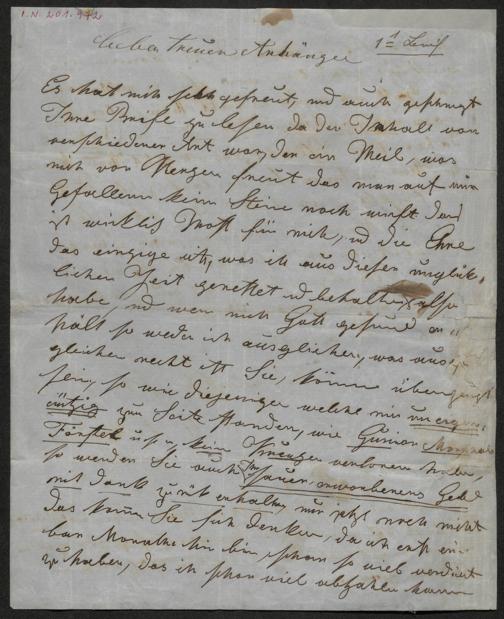 I.N. 201.972
Lieben treuen Anhänger
Es hat mich sehr gefreut, und auch geschmerzt
Ihre Briefe zu lesen da der Inhalt von
verschiedener Art war, der ein Theil, was
mich von Herzen freut das man auf mir
Gefallenen kein Steine noch wirft das
ist wirklich Trost für mich, und die Ehre
das einzige ist, was ich aus dieser unglük,
lichen Zeit gerettet und behalten
habe, und wen mich Gott gesund er,,
hält so werde ich ausgleichen, was auszu
gleichen recht ist Sie, können überzeugt
sein, so wie diejenigen welche mir
zur Seite standen, wie
u.s.w. kein Kreuzer verloren haben,
so werden Sie auch Ihr sauer erworbenes Geld
mit Dank zurük erhalten nur jetzt noch nicht
das können Sie sich denken, da ich erst ein
paar Monathe hir bin, schon so viel verdient
zu haben, das ich schon viel abzahlen kann